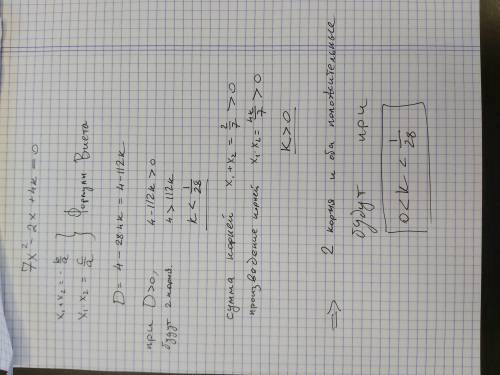 7x² - 2x + 4k = 0
x₁ + x₂ = b/a } формулы Виета
x₁ · x₂ = c/a
D = 4 - 28·4k = 4 - 112k
при D > 0, 4 - 112k > 0
будут 2 корня. 4 > 112k
k < 1/28
сумма корней x₁ + x₂ = 2/7 > 0
произведение корней x₁ · x₂ = 4k/7 > 0
k > 0
=> 2 корня и оба положительные
будут при
0 < k < 1/28